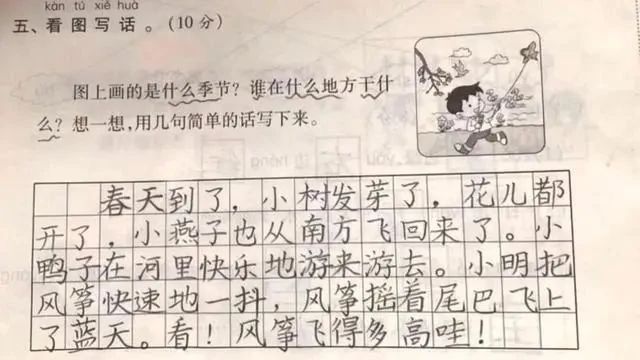 kàn tú xiě huà
五、看图写话。(10分)
图上画的是什么季节?谁在什么地方干什
么?想一想,用几句简单的话写下来。
春天到了,小树发芽了,花儿都
开了,小燕子也从南方飞回来了。小
鸭子在河里快乐地游来游去。小明把
风筝快速地一抖,风筝摇着尾巴飞上
了蓝天。看!风筝飞得多高哇!